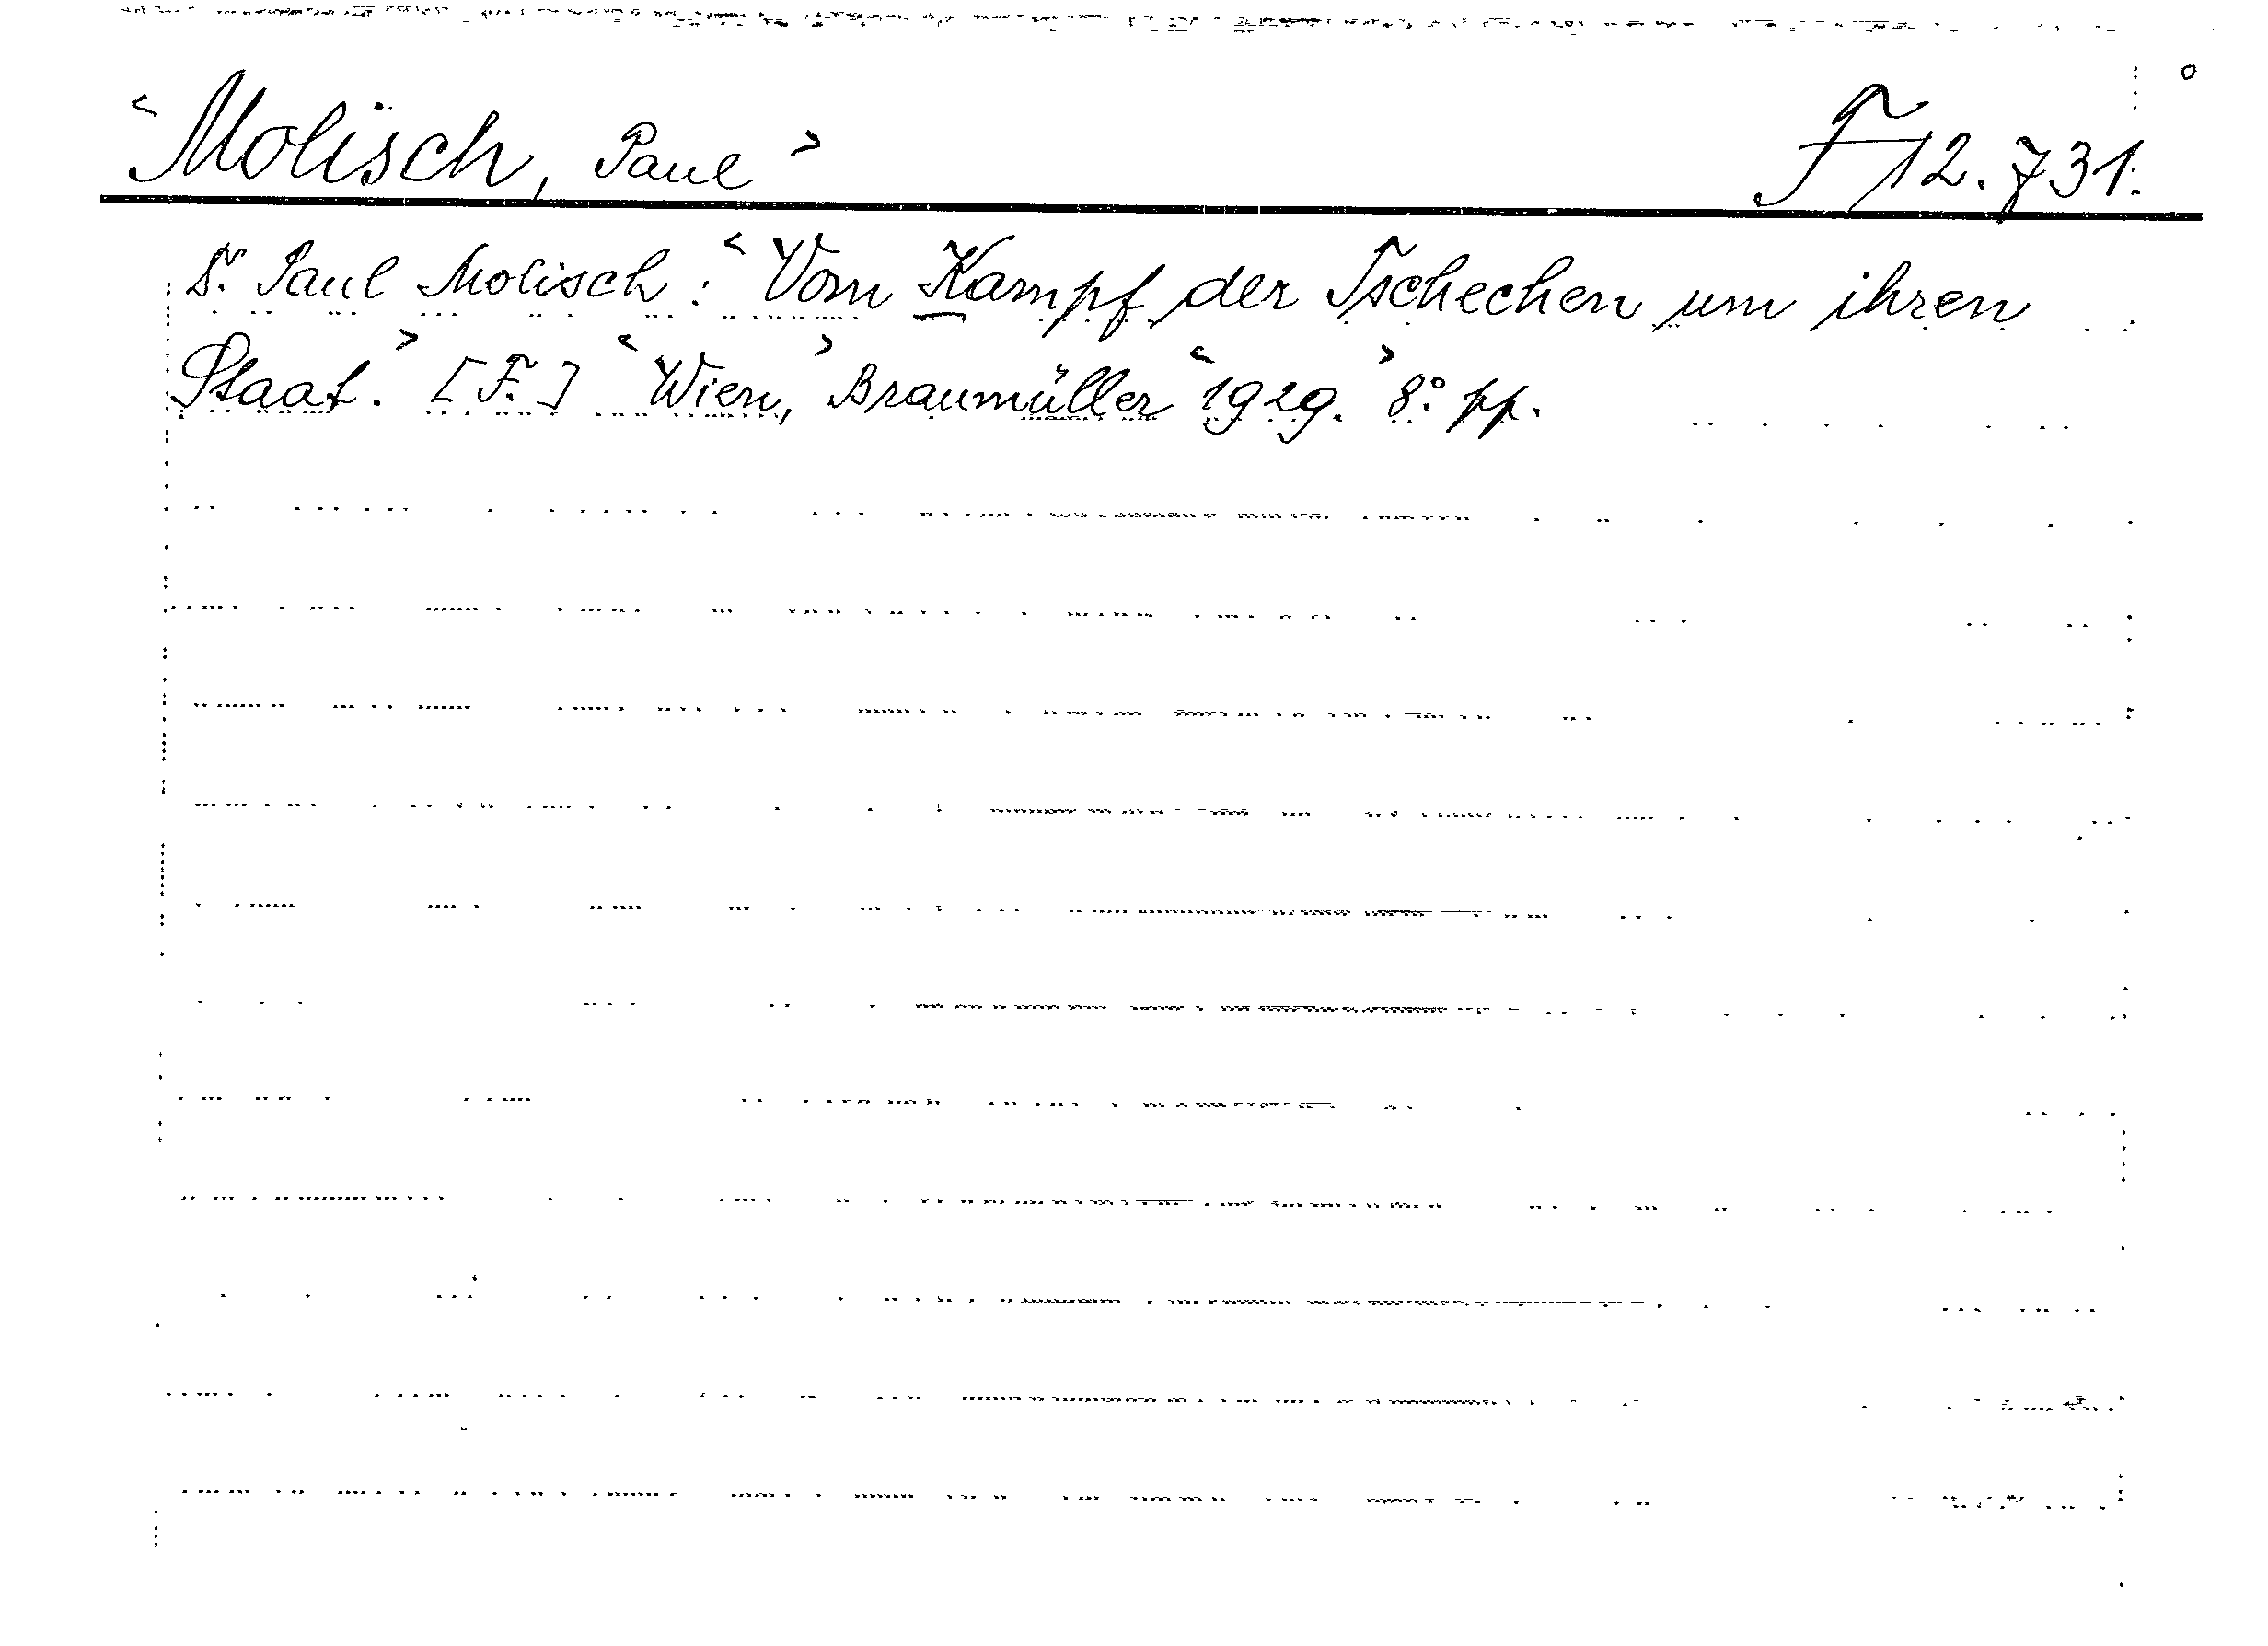 <Molisch, Paul> F 12.731.
Dr. Paul Molisch: <Vom Kampf der Tschechen um ihren
Staat.> [F.] <Wien,> Braumüller <1929.> 8° pp.